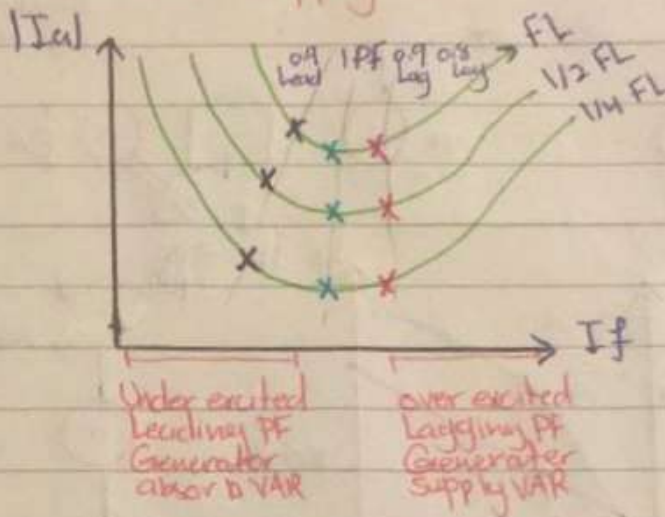 |Ia|
0.9 1 PF 0.9 0.8
Lead Lag Lag
FL
1/2 FL
1/4 FL
If
Under excited
Leading PF
Generator
absorb VAR
over excited
Lagging PF
Generater
supply VAR